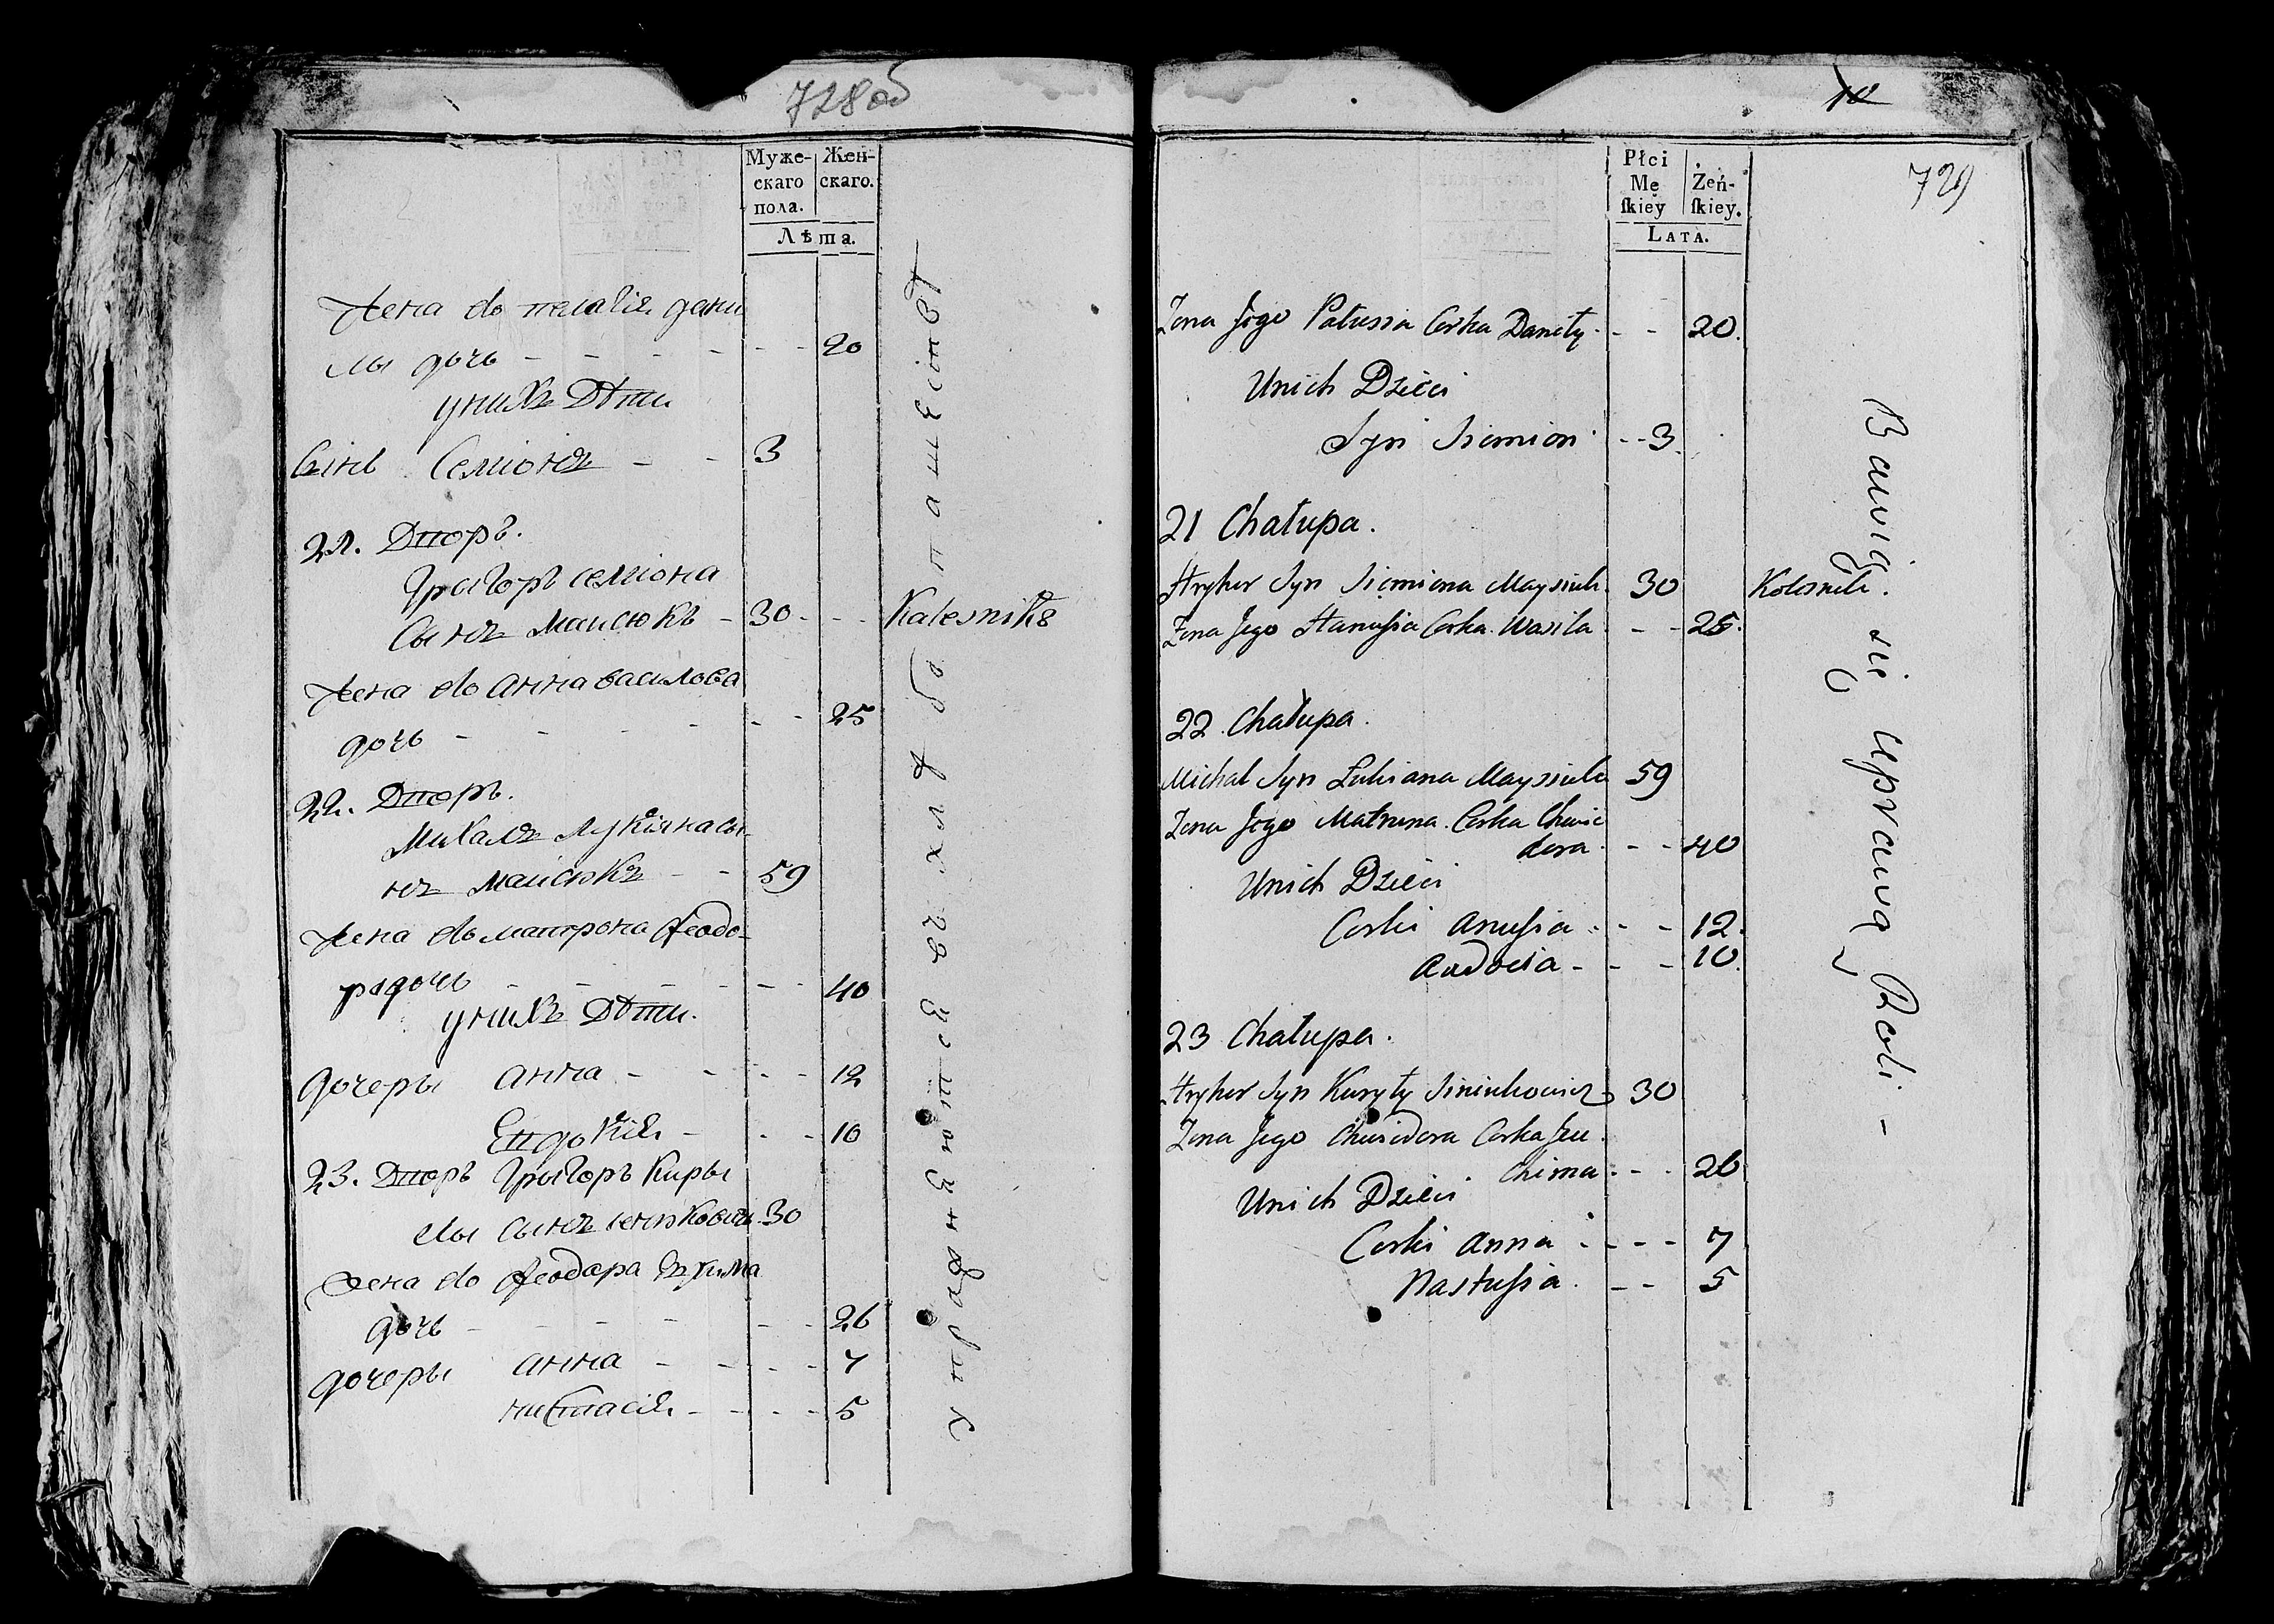 728об
Муже-
скаго
пола.
Жен-
скаго.
Лѣта.
Жена его Наталія дани
лы дочь - - - - - - 20
у нихъ Дѣти
Сынъ Семіонъ - - 3
21. Дворъ.
Грыгоръ семіона
Сынъ Маисюкъ - 30 - - - Kalesnikъ
Жена его анна василова
дочь - - - - - - 25
22. Дворъ.
Михалъ Лукіяна сы-
нъ Маисюкъ - - 59
Жена его матрона Феодо-
ра дочь - - - - - - 40
у нихъ Дѣти.
дочеры анна - - - - 12
Евдокія - - - - 10
23. Дворъ Грыгоръ Киры
лы сынъ сенюковичъ 30
Жена его Феодора Ефима
дочь - - - - - - 26
дочеры анна - - - - 7
настасія - - - - 5
Упражняются въ хлебопашествѣ
10
729
Płci
Mę
ſkiey
Żeń-
ſkiey.
LATA.
Zona Jego Patusia Corka Daniły - - - 20.
Unich Dzieci
Syn Siemion - - 3.
21 Chałupa.
Hryhor Syn Siemiona Maysiuk. 30 Kolesnik.
Zona Jego Hanuſia Corka Wasila - - - 25.
22 Chałupa.
Michał Syn Łukiana Maysiuk 59
Zona Jego Matruna Corka Chwie
dora - - - 40
Unich Dzieci
Corki Anuſia - - - 12.
Audocia - - - 10.
23 Chałupa.
Hryhor Syn Kuryły Siniukowicz 30
Zona Jego Chwiedora Corka Jeu
chima - - - 26
Unich Dzieci
Corki Anna - - - - 7
Nastuſia. - - 5
Bawią się uprawą Roli -